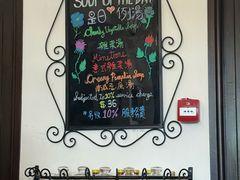 SOUP OF THE DAY
是日例湯
Chunky Vegetable Soup
雜菜湯
Minestrone
意式雜菜湯
Creamy Pumpkin Soup
南瓜忌廉湯
Subjected to 10% service charge
$ 36
*另收 10% 服務費